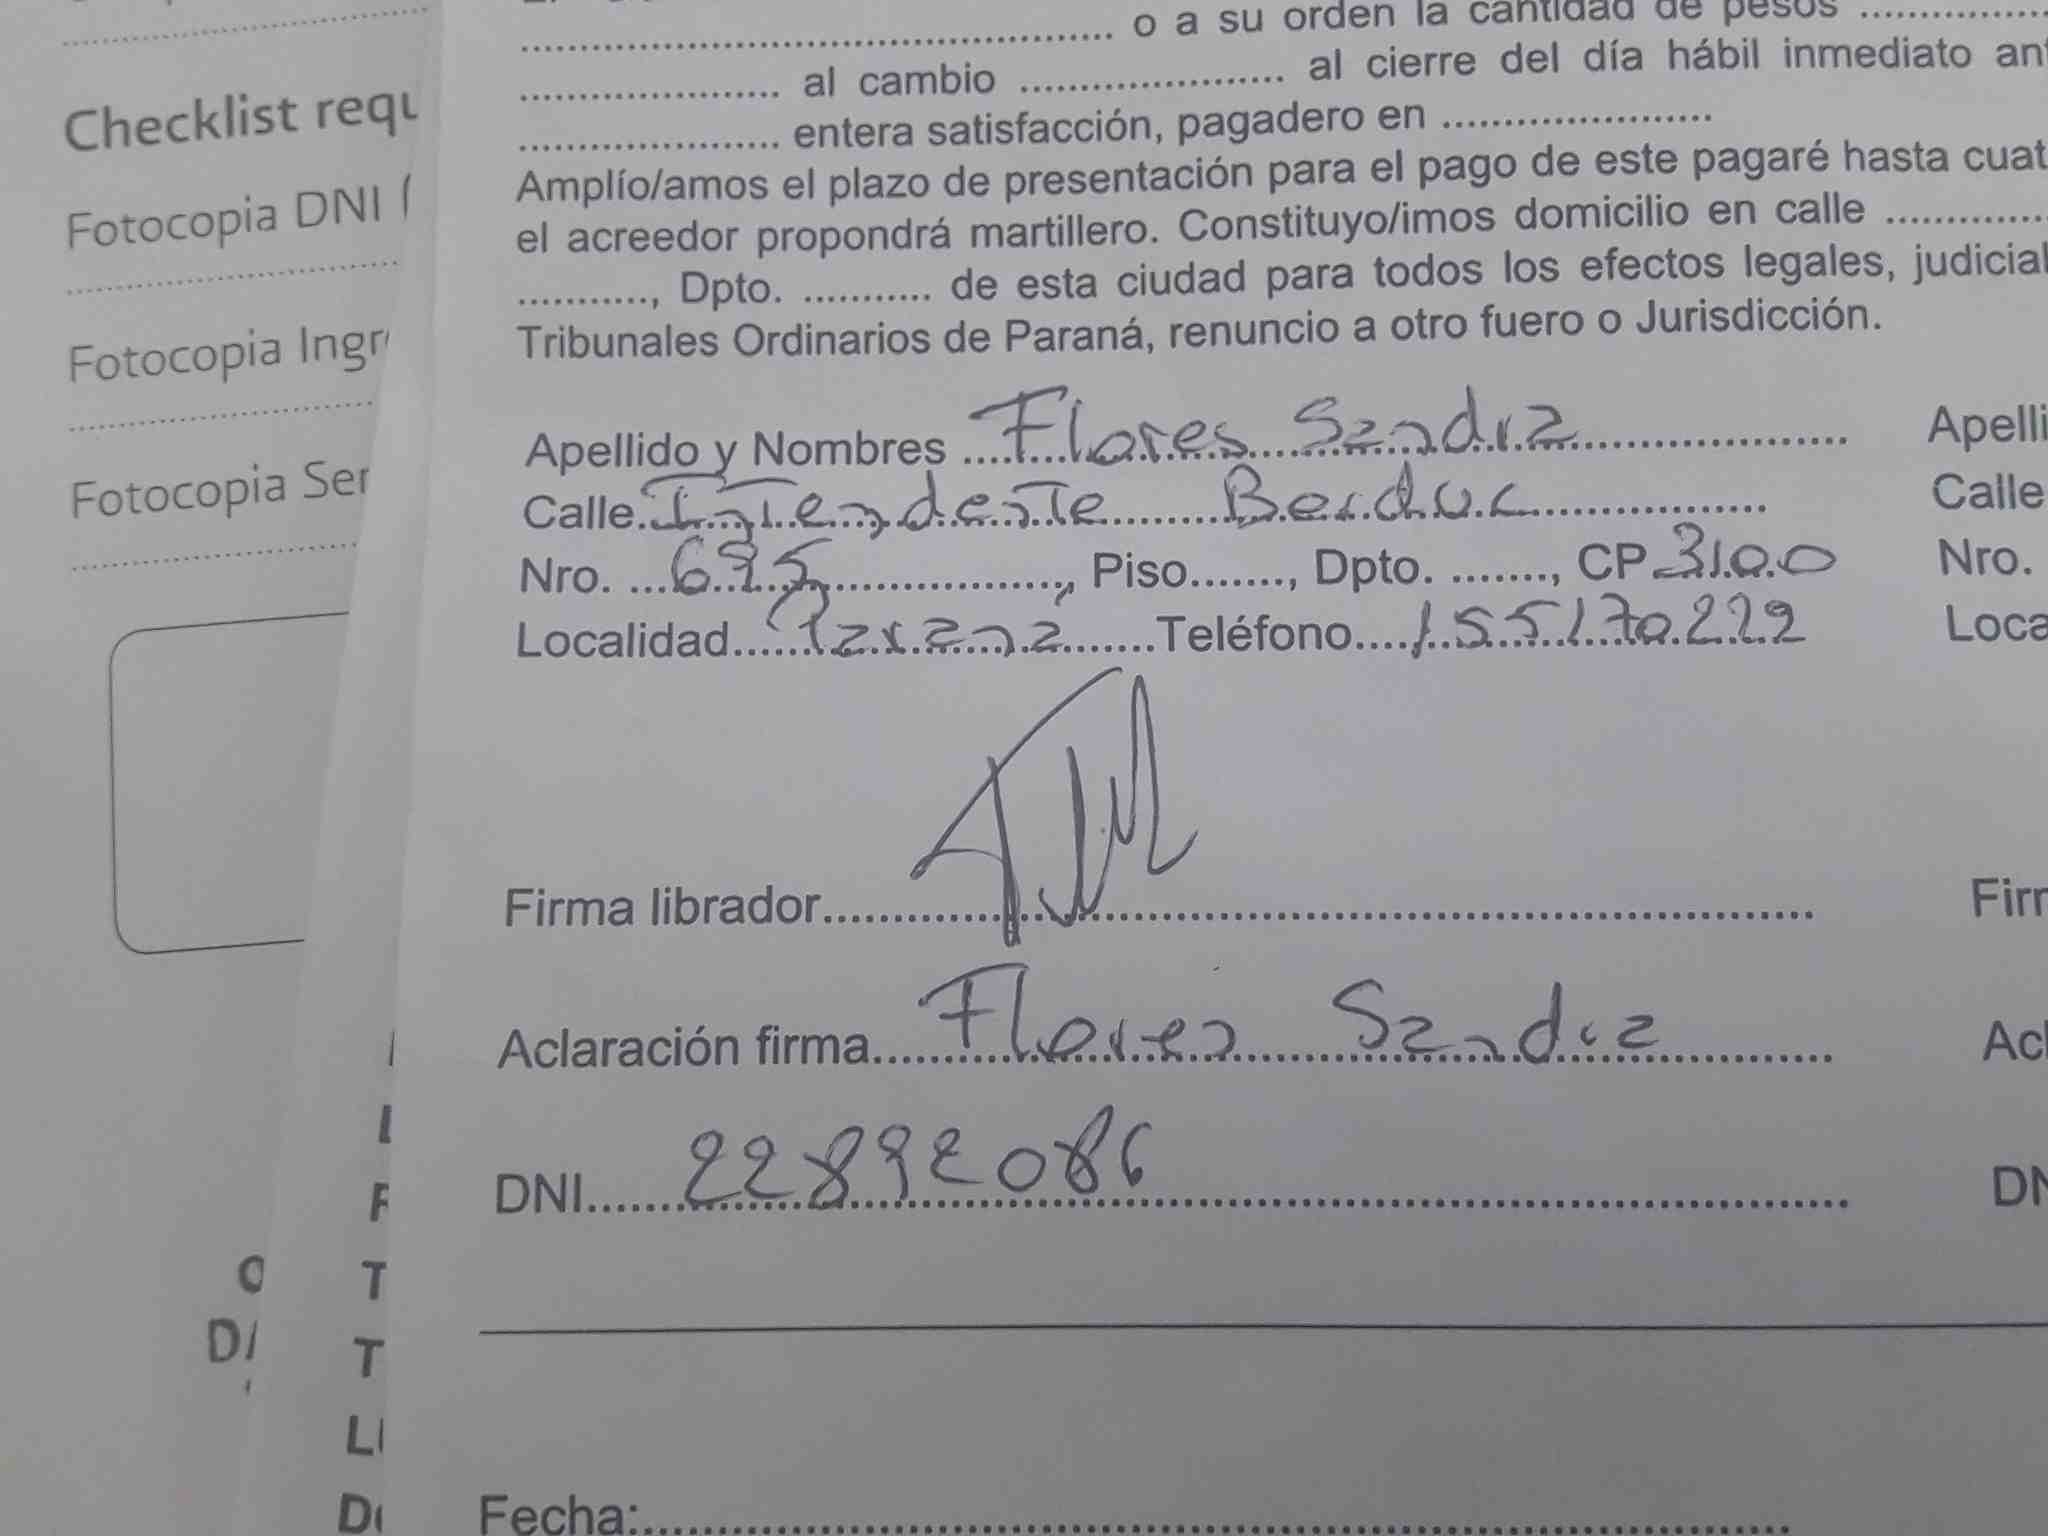 Checklist requ
Fotocopia DNI (
Fotocopia Ingr
Fotocopia Ser
.......... o a su orden la cantidad de pesos ..........
.......... al cambio .......... al cierre del día hábil inmediato ant
.......... entera satisfacción, pagadero en ..........
Amplío/amos el plazo de presentación para el pago de este pagaré hasta cuat
el acreedor propondrá martillero. Constituyo/imos domicilio en calle ..........
.........., Dpto. .......... de esta ciudad para todos los efectos legales, judicial
Tribunales Ordinarios de Paraná, renuncio a otro fuero o Jurisdicción.
Apellido y Nombres Flores Sandra
Calle Intendente Berduc
Nro. 695, Piso......., Dpto. ......., CP 3100
Localidad Parana Teléfono 155170229
Firma librador
Aclaración firma Flores Sandra
DNI 22892086
Fecha:
Apelli
Calle
Nro.
Loca
Firm
Acl
DN